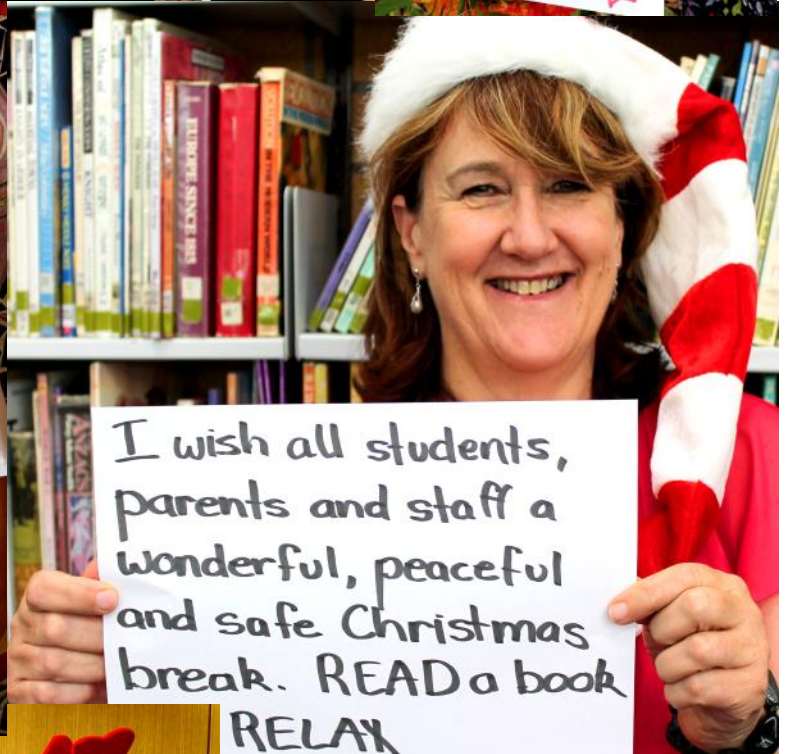 EUROPE SINCE 1815
KNIGHT
ANZACS
I wish all students,
parents and staff a
wonderful, peaceful
and safe Christmas
break. READ a book
RELAX